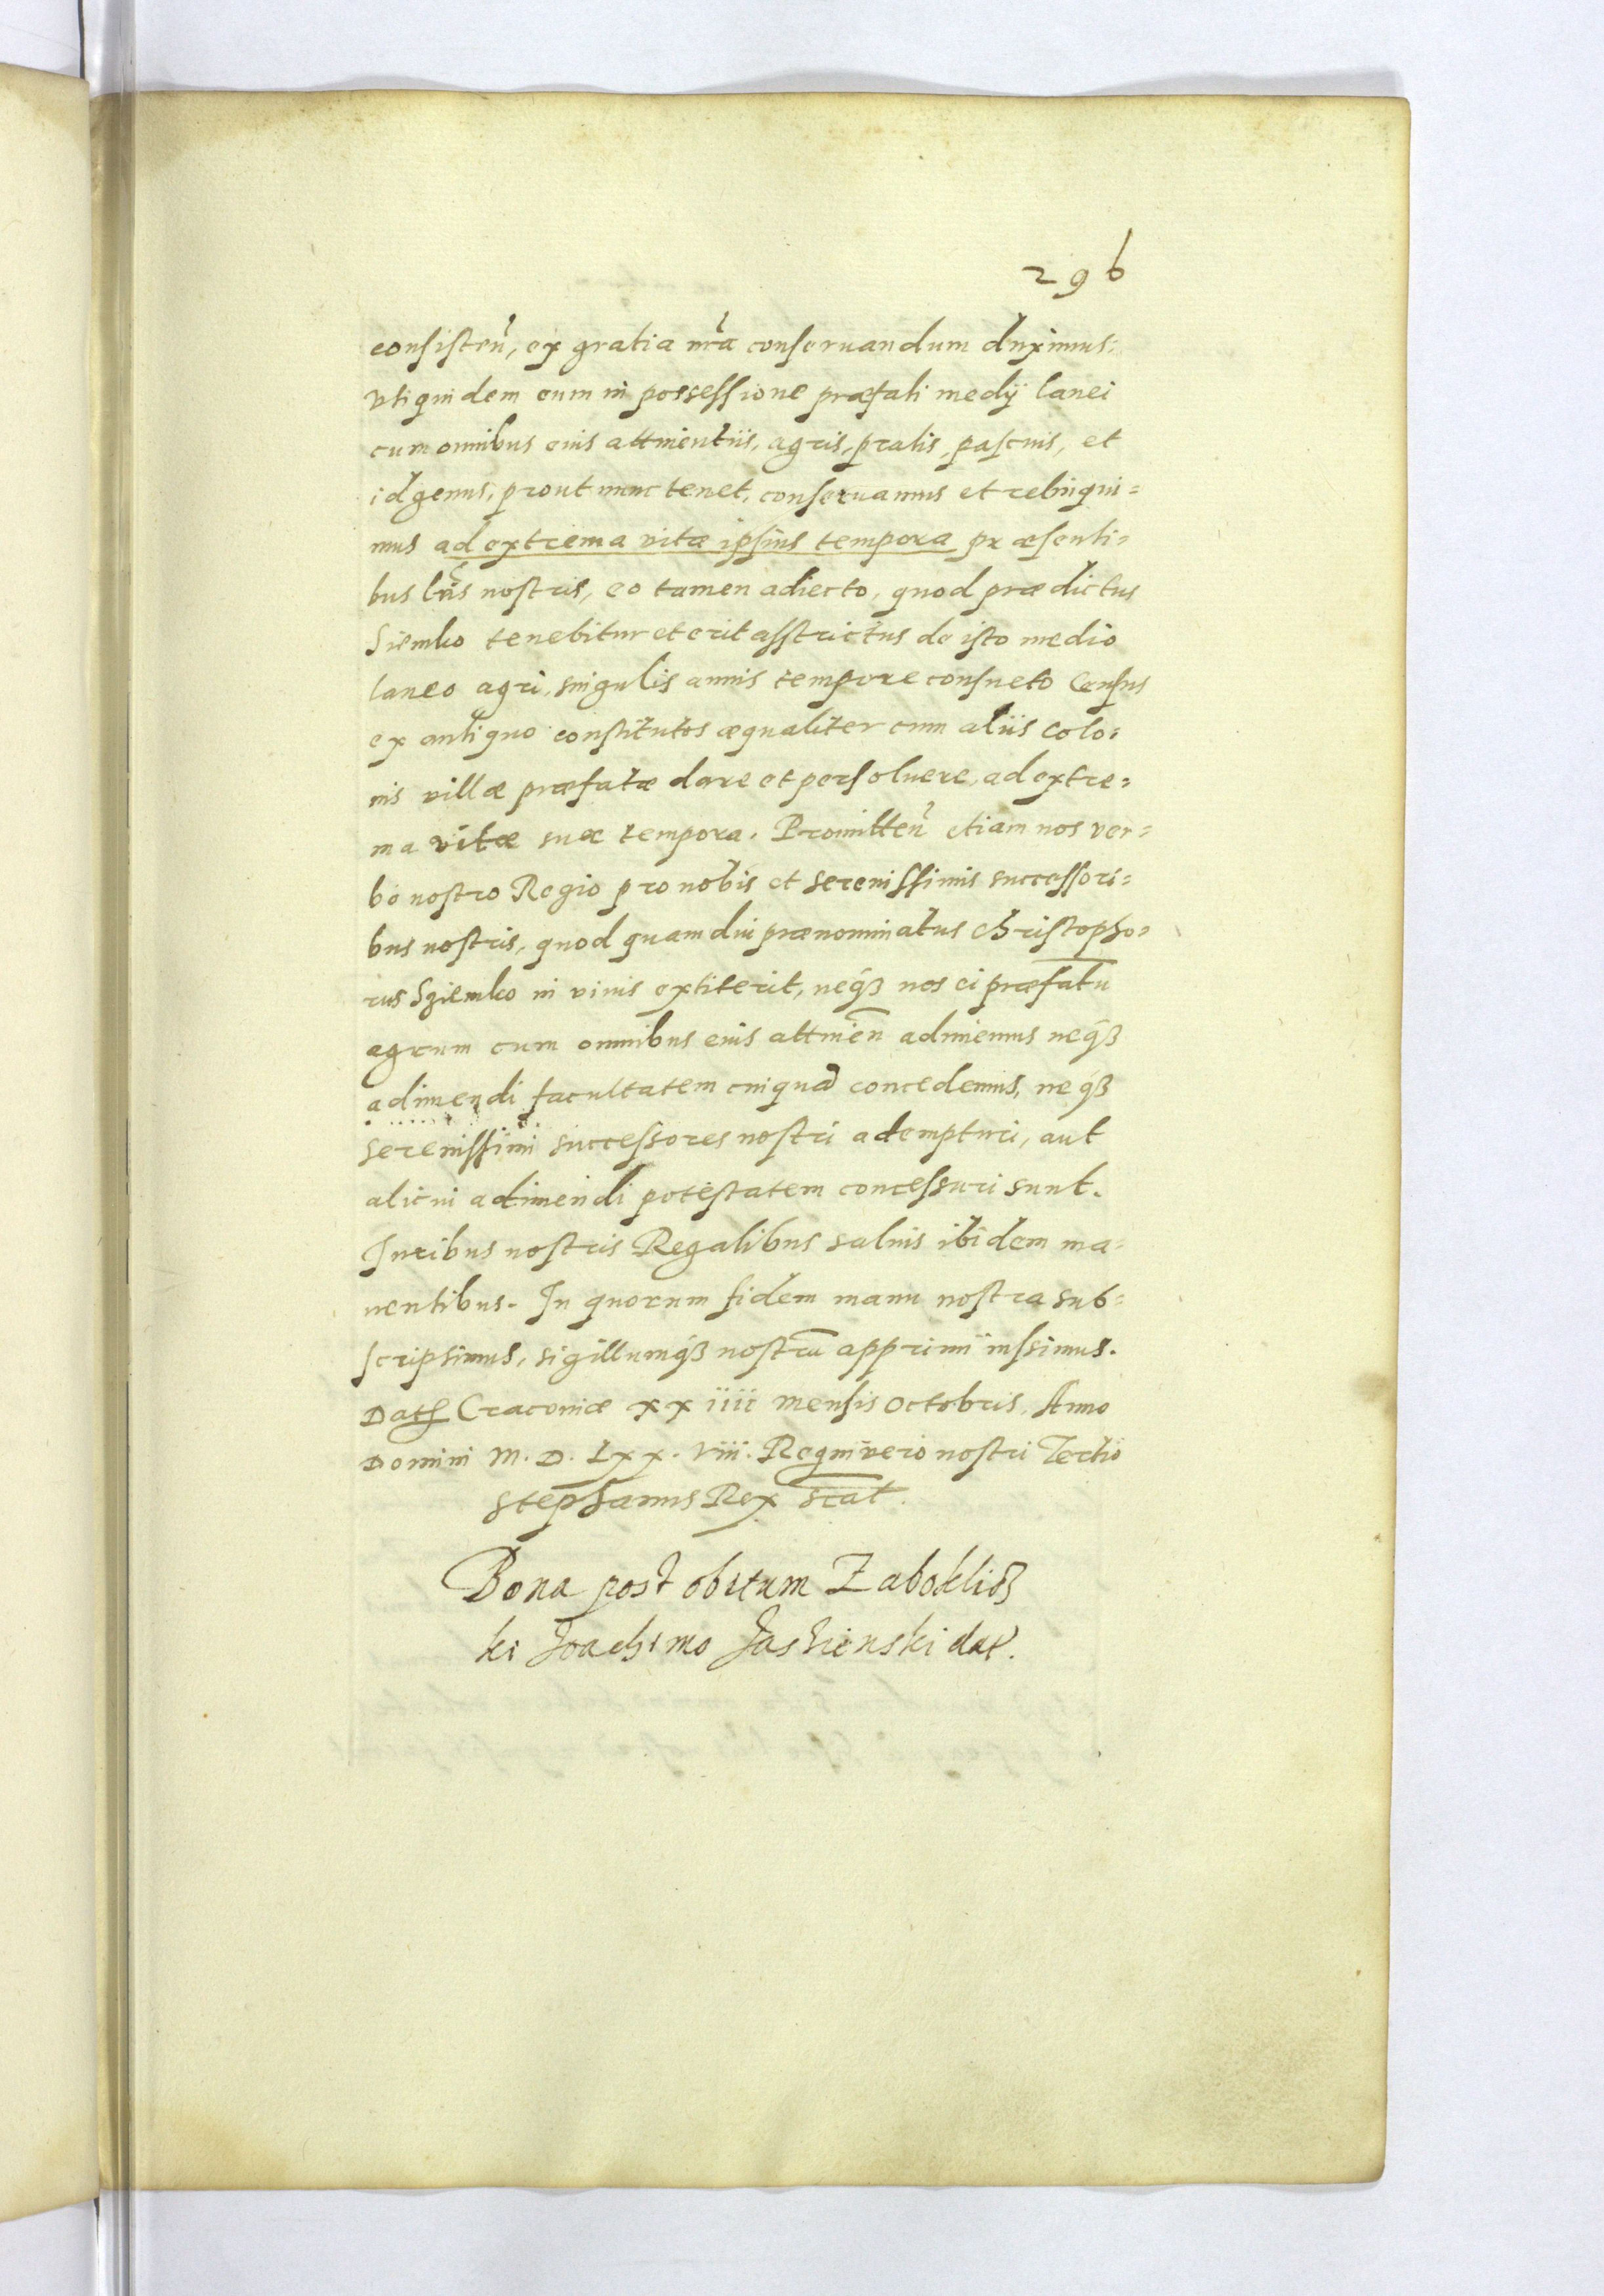 296
consisteñ, ex gratia nr̃a conseruandum duximus:
vti quidem eum in possessione præfati medij lanei
cum omnibus eius attinentiis, agris, pratis, pascuis, et
id genus, prout nunc tenet, conseruamus et relinqui=
mus ad extrema vitæ ipsius tempora præsenti=
bus lr̃is nostris, eo tamen adiecto, quod prædictus
Siemko tenebitur et erit asstrictus de isto medio
laneo agri, singulis annis tempore consueto Census
ex antiquo constitutos æqualiter cum aliis colo=
nis villæ præfatæ dare et persoluere, ad extre=
ma vitæ suæ tempora. Promitteñ etiam nos ver=
bo nostro Regio pro nobis et serenissimis successori=
bus nostris, quod quamdiu prænominatus Christopho=
rus Sziemko in viuis extiterit, neqȝ nos ei præfatū
agrum cum omnibus eius attineñ adimemus neqȝ
adimendi facultatem cuiquā concedemus, neqȝ
serenissimi successores nostri adempturi, aut
alicui adimendi potestatem concessuri sunt.
Iuribus nostris Regalibus saluis ibidem ma=
nentibus. In quorum fidem manu nostra sub=
scripsimus, sigillumqȝ nostrū apprimi iussimus.
Dat Cracouiæ xx iiii mensis octobris, Anno
Domini M. D. Lxx. viii. Regni vero nostri Tertio
Stephanus Rex scat.
Bona post obitum
ki Joachimo dat.